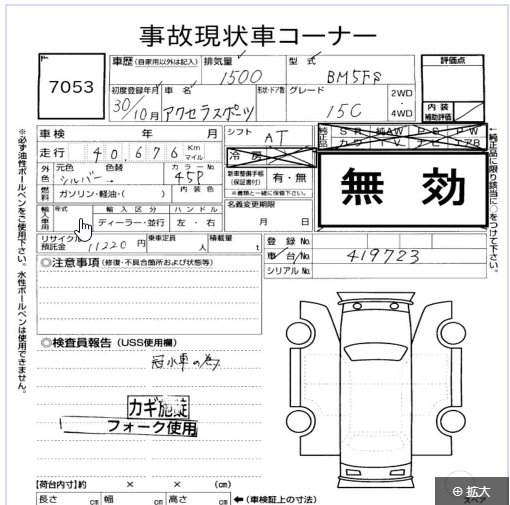 事故現状車コーナー
7053
車歴 (自家用以外は記入) 排気量 型式 評価点
1500 BM5FS
初度登録年月 車名 形状・ドア数 グレード 2WD・4WD
30/10月 アクセラスポーツ 15C
内装補助評価
車検 年 月 シフト AT
純正品 SR 純AW PS PW
カワ TV ナビ エアB
走行 40,676 Km マイル 冷房
無効
外色 元色 色替 カラーNo.
シルバー 45P
新車整備手帳(保証書付) 有・無
※書類と一緒に保管下さい。
燃料 ガソリン・軽油・( ) 内装色
名義変更期限
月 日
輸入車用 年式 輸入区分 ハンドル
ディーラー・並行 左・右
リサイクル預託金 11220円 乗車定員 人 積載量 t
登録No.
車台No. 419723
シリアルNo.
◎注意事項 (修復・不具合箇所および状態等)
◎検査員報告 (USS使用欄)
冠水車の為
カギ施錠
フォーク使用
【荷台内寸】約 × × (cm)
長さ cm 幅 cm 高さ cm ←(車検証上の寸法)
スペア
拡大
※必ず油性ボールペンをご使用下さい。水性ボールペンは使用できません。
←純正品に限り該当に○をつけて下さい。